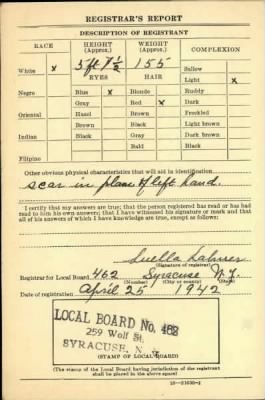 REGISTRAR'S REPORT
DESCRIPTION OF REGISTRANT
RACE HEIGHT (Approx.) WEIGHT (Approx.) COMPLEXION
5 ft 7 1/2 155 Sallow
White x EYES HAIR Light x
Negro Blue x Blonde Ruddy
Gray Red x Dark
Oriental Hazel Brown Freckled
Brown Black Light brown
Indian Black Gray Dark brown
Bald Black
Filipino
Other obvious physical characteristics that will aid in identification
scar in palm of left hand.
I certify that my answers are true; that the person registered has read or has had
read to him his own answers; that I have witnessed his signature or mark and that
all of his answers of which I have knowledge are true, except as follows:
Luella
(Signature of registrar)
Registrar for Local Board 462 Syracuse N.Y.
(Number) (City or county) (State)
Date of registration April 25 1942
LOCAL BOARD No. 462
259 Wolf St.
SYRACUSE, N. Y.
(STAMP OF LOCAL BOARD)
(The stamp of the Local Board having jurisdiction of the registrant
shall be placed in the above space)